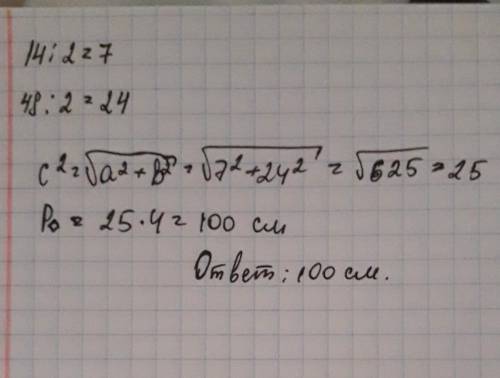 14:2=7
48:2=24
c²=√a²+b² = √7²+24² = √625 = 25
P◊ = 25·4=100 см
Ответ: 100 см.